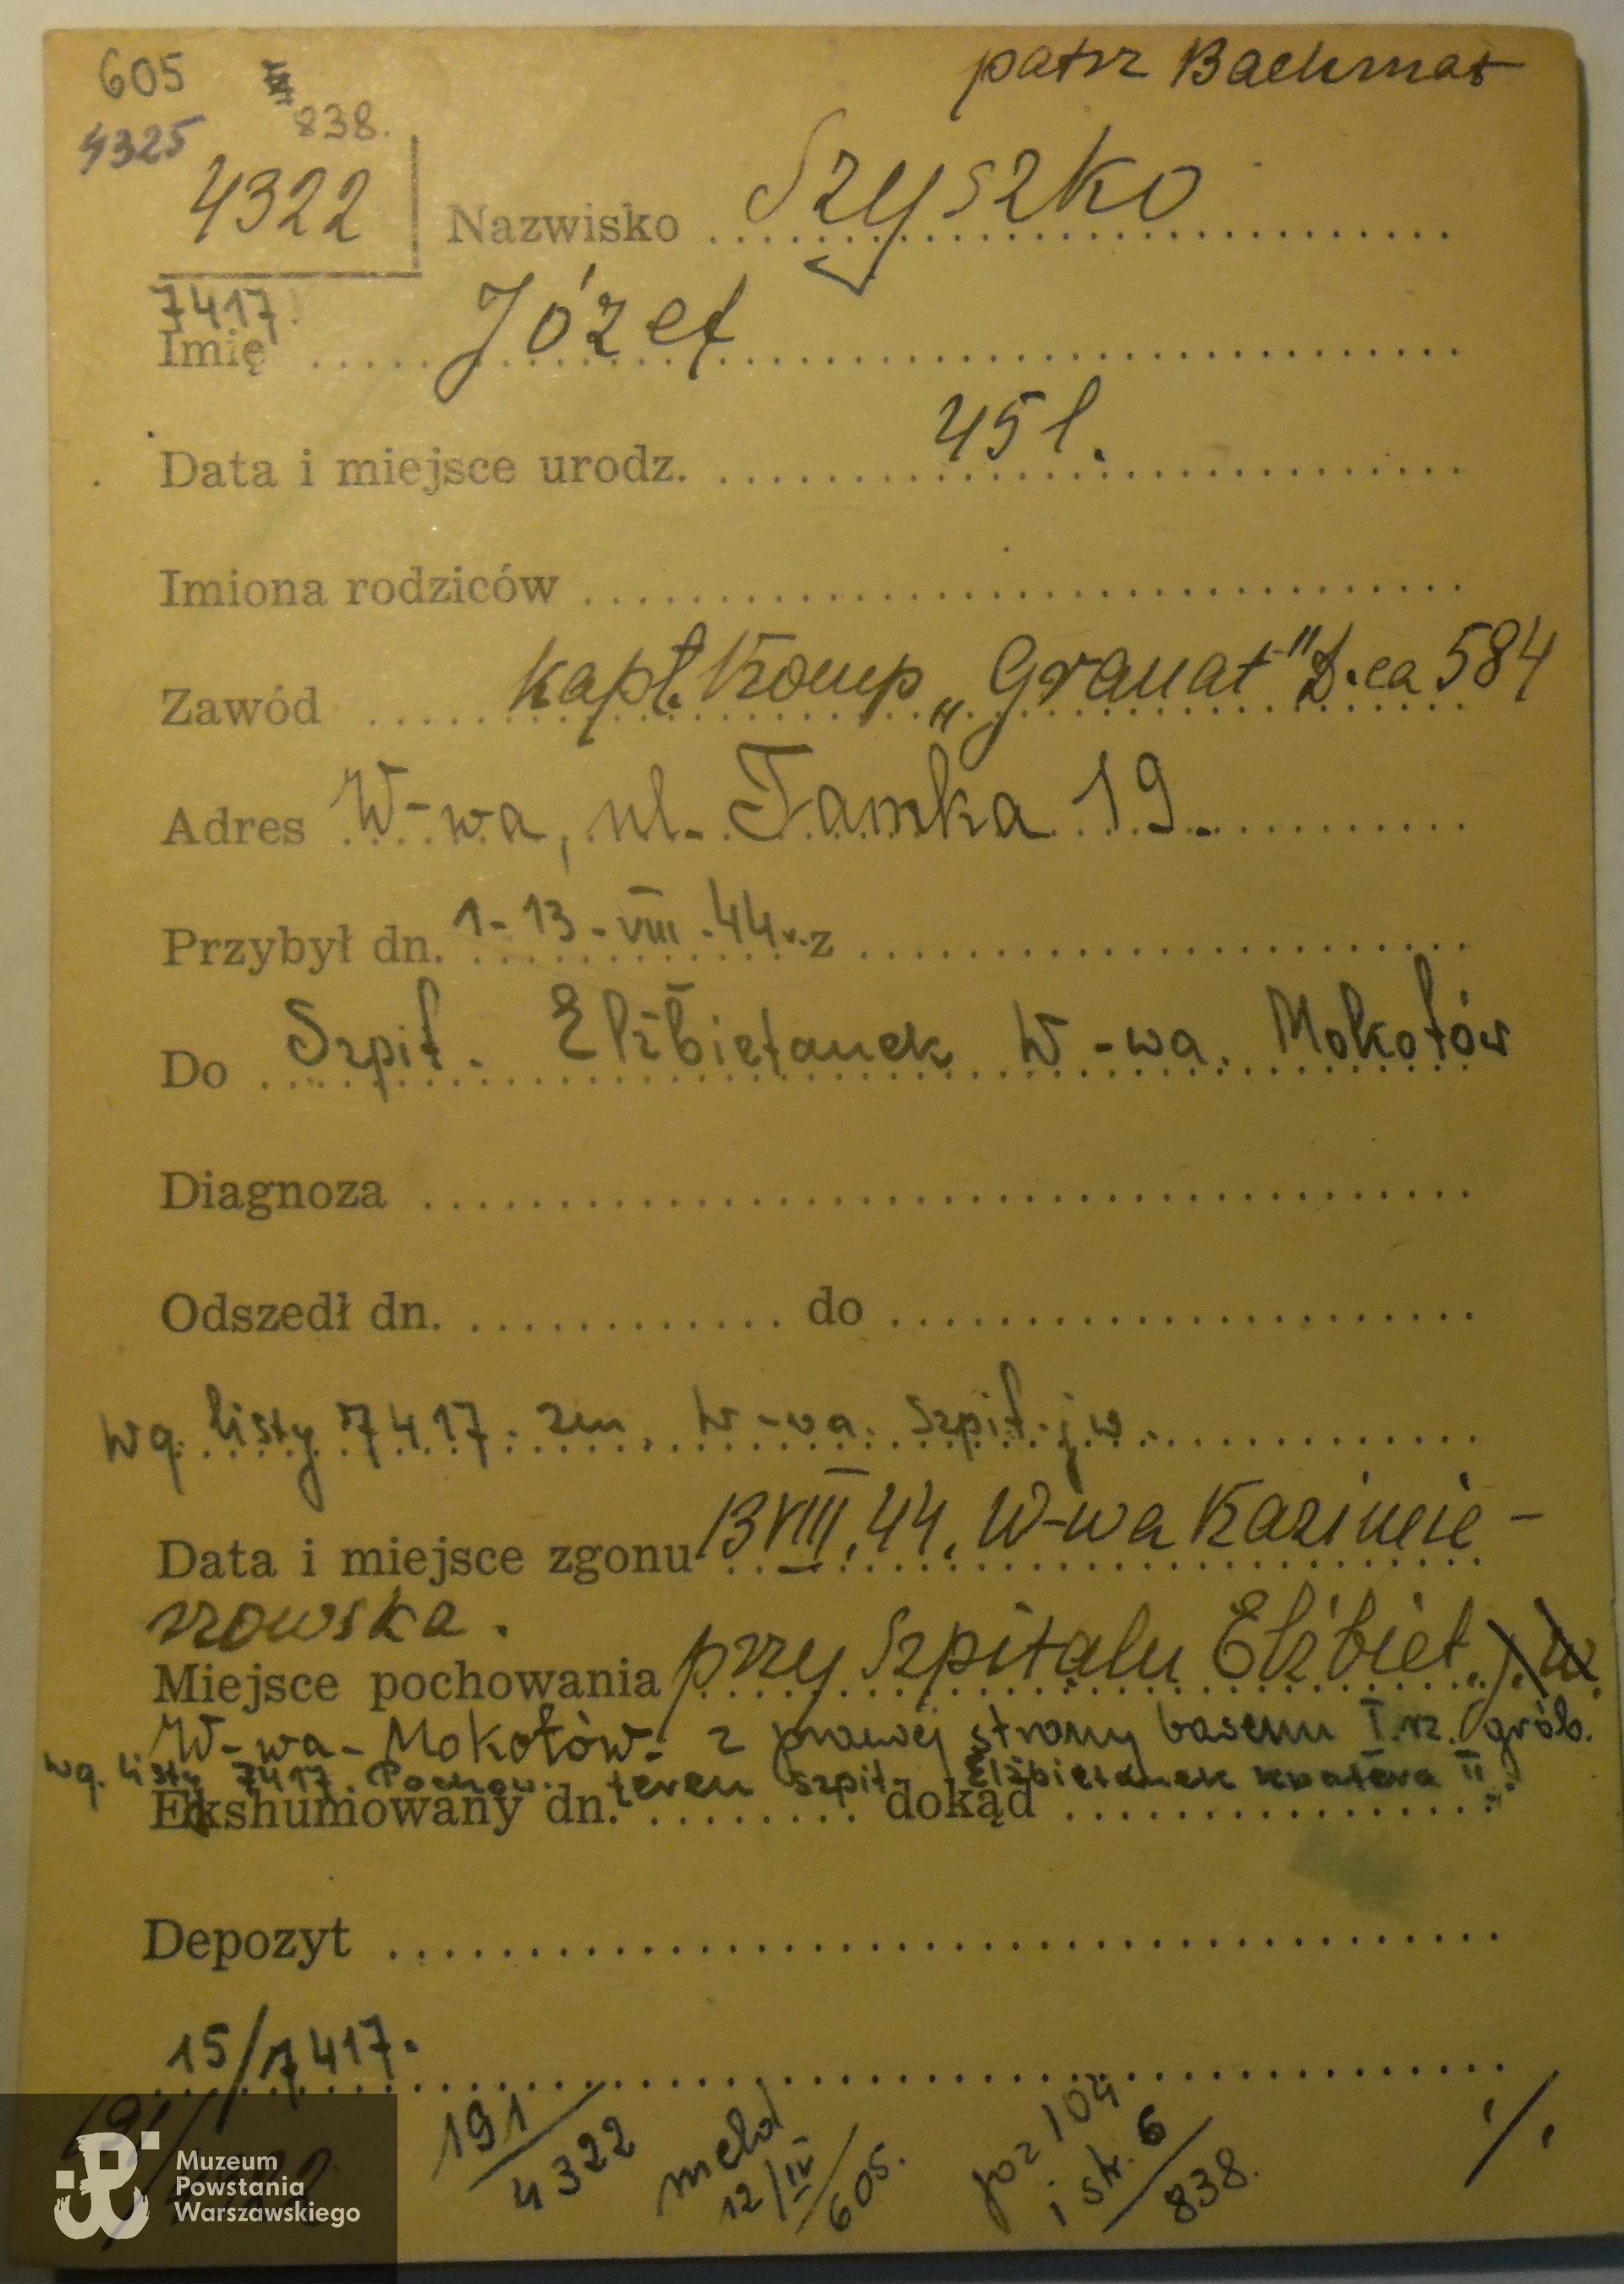 605
838.
patrz Bachmat
4325
4322
Nazwisko Szyszko
7417
Imię Józef
Data i miejsce urodz. 45 l.
Imiona rodziców
Zawód kapt. Komp „Granat" D.ca 584
Adres W-wa, ul. Tamka 19.
Przybył dn. 1-13-VIII-44 r. z
Do Szpit. Elżbietanek W-wa. Mokotów
Diagnoza
Odszedł dn. do
wg. listy 7417. zm. W-wa. szpit. j.w.
Data i miejsce zgonu 13 VIII. 44. W-wa Kazimie-
rowska.
Miejsce pochowania przy Szpitalu Elżbiet. j.w.
W-wa-Mokotów. z prawej strony basenu I. rz. grób.
wg. listy 7417. Pochow. teren szpit. Elżbietanek kwatera II
Ekshumowany dn. dokąd
Depozyt
15/7417.
191/4322
meld 12/IV/605.
poz 104 i str. 6/838.
./.
Muzeum
Powstania
Warszawskiego